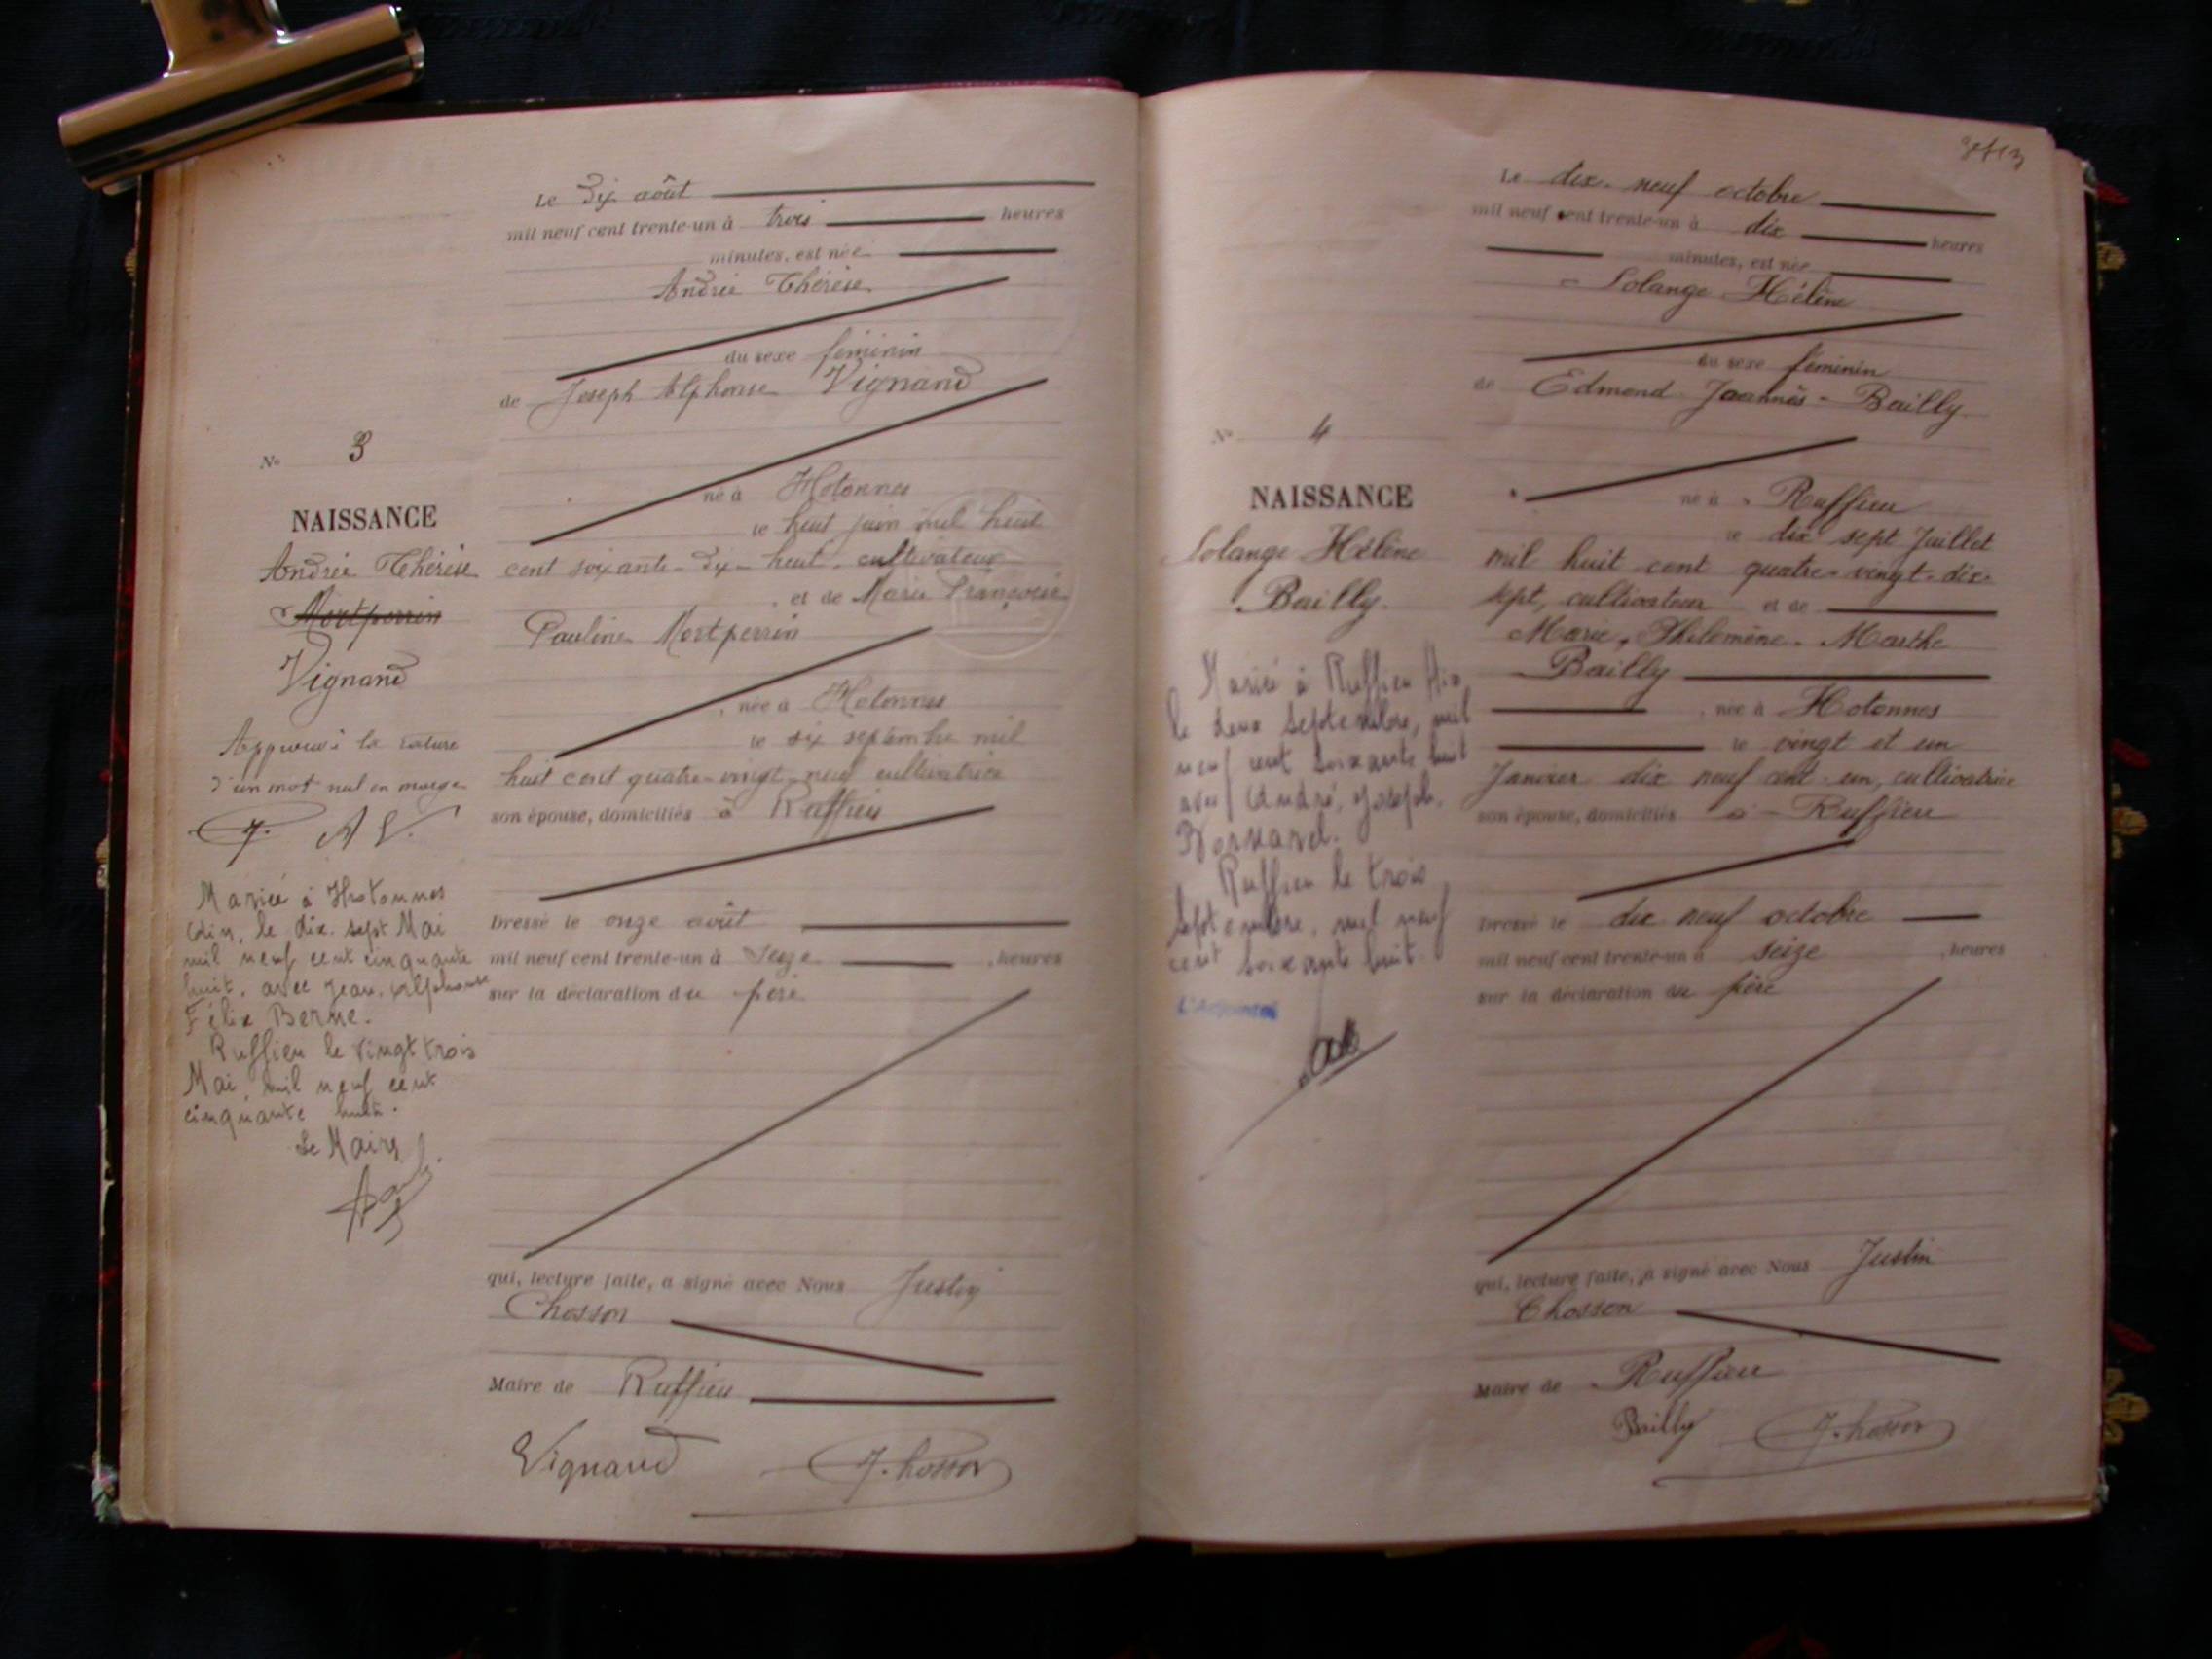 Le dix août
mil neuf cent trente-un à trois heures
minutes, est née
Andrée Thérèse
du sexe féminin
de Joseph Alphonse Vignand
né à Hotonnes
le huit juin mil huit
cent soixante-dix-huit, cultivateur
, et de Marie Françoise
Pauline Montperrin
, née à Hotonnes
le six septembre mil
huit cent quatre-vingt-neuf cultivatrice
son épouse, domiciliés à Ruffieu
Dressé le onze août
mil neuf cent trente-un à seize , heures
sur la déclaration du père
qui, lecture faite, a signé avec Nous Justin
Chosson
Maire de Ruffieu
Vignand J. Chosson
No 3
NAISSANCE
Andrée Thérèse
Montperrin
Vignand
Approuvé la rature
d'un mot nul en marge
J. A V.
Mariée à Hotonnes
Ain, le dix sept Mai
mil neuf cent cinquante
huit, avec Jean, Alphonse
Félix Berne.
Ruffieu le vingt trois
Mai, mil neuf cent
cinquante huit.
Le Maire
Le dix-neuf octobre
mil neuf cent trente-un à dix heures
minutes, est née
Solange Hélène
du sexe féminin
de Edmond Joannès - Bailly
né à Ruffieu
le dix sept Juillet
mil huit cent quatre-vingt-dix-
sept, cultivateur et de
Marie, Philomène - Marthe
Bailly
, née à Hotonnes
le vingt et un
Janvier dix neuf cent un, cultivatrice
son épouse, domiciliés à Ruffieu
Dressé le dix neuf octobre
mil neuf cent trente-un à seize , heures
sur la déclaration du père
qui, lecture faite, a signé avec Nous Justin
Chosson
Maire de Ruffieu
Bailly J. Chosson
No 4
NAISSANCE
Solange Hélène
Bailly.
Mariée à Ruffieu Ain
le deux Septembre, mil
neuf cent soixante huit
avec André, Joseph,
Ruffieu le trois
Septembre, mil neuf
cent soixante huit.
L'Adjoint